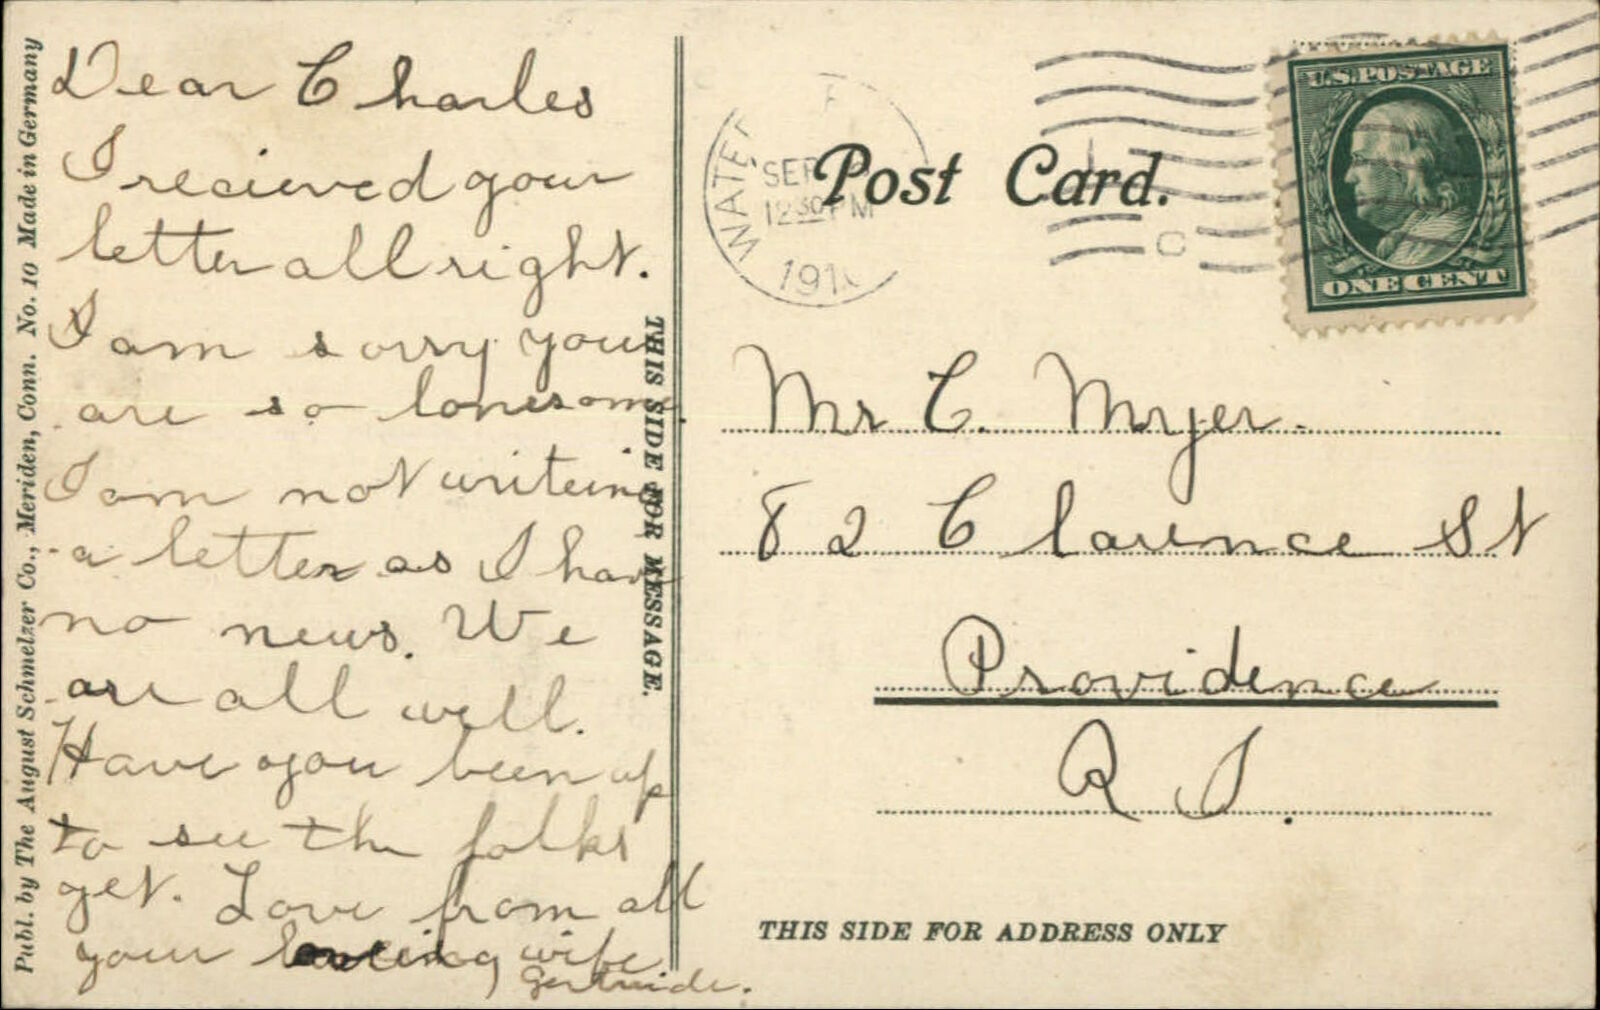 Publ. by The August Schmelzer Co., Meriden, Conn. No. 10 Made in Germany
Dear Charles
I recieved your
letter all right.
I am sorry you
are so lonesome.
I am not writeing
a letter as I have
no news. We
are all well.
Have you been up
to see the folks
yet. Love from all
your loveing wife
Gertruide.
THIS SIDE FOR MESSAGE.
Post Card.
WATER
SEP
12 30 PM
191
C
U.S. POSTAGE
ONE CENT
Mr C. Myer.
82 Clarence St
Providence
R I.
THIS SIDE FOR ADDRESS ONLY